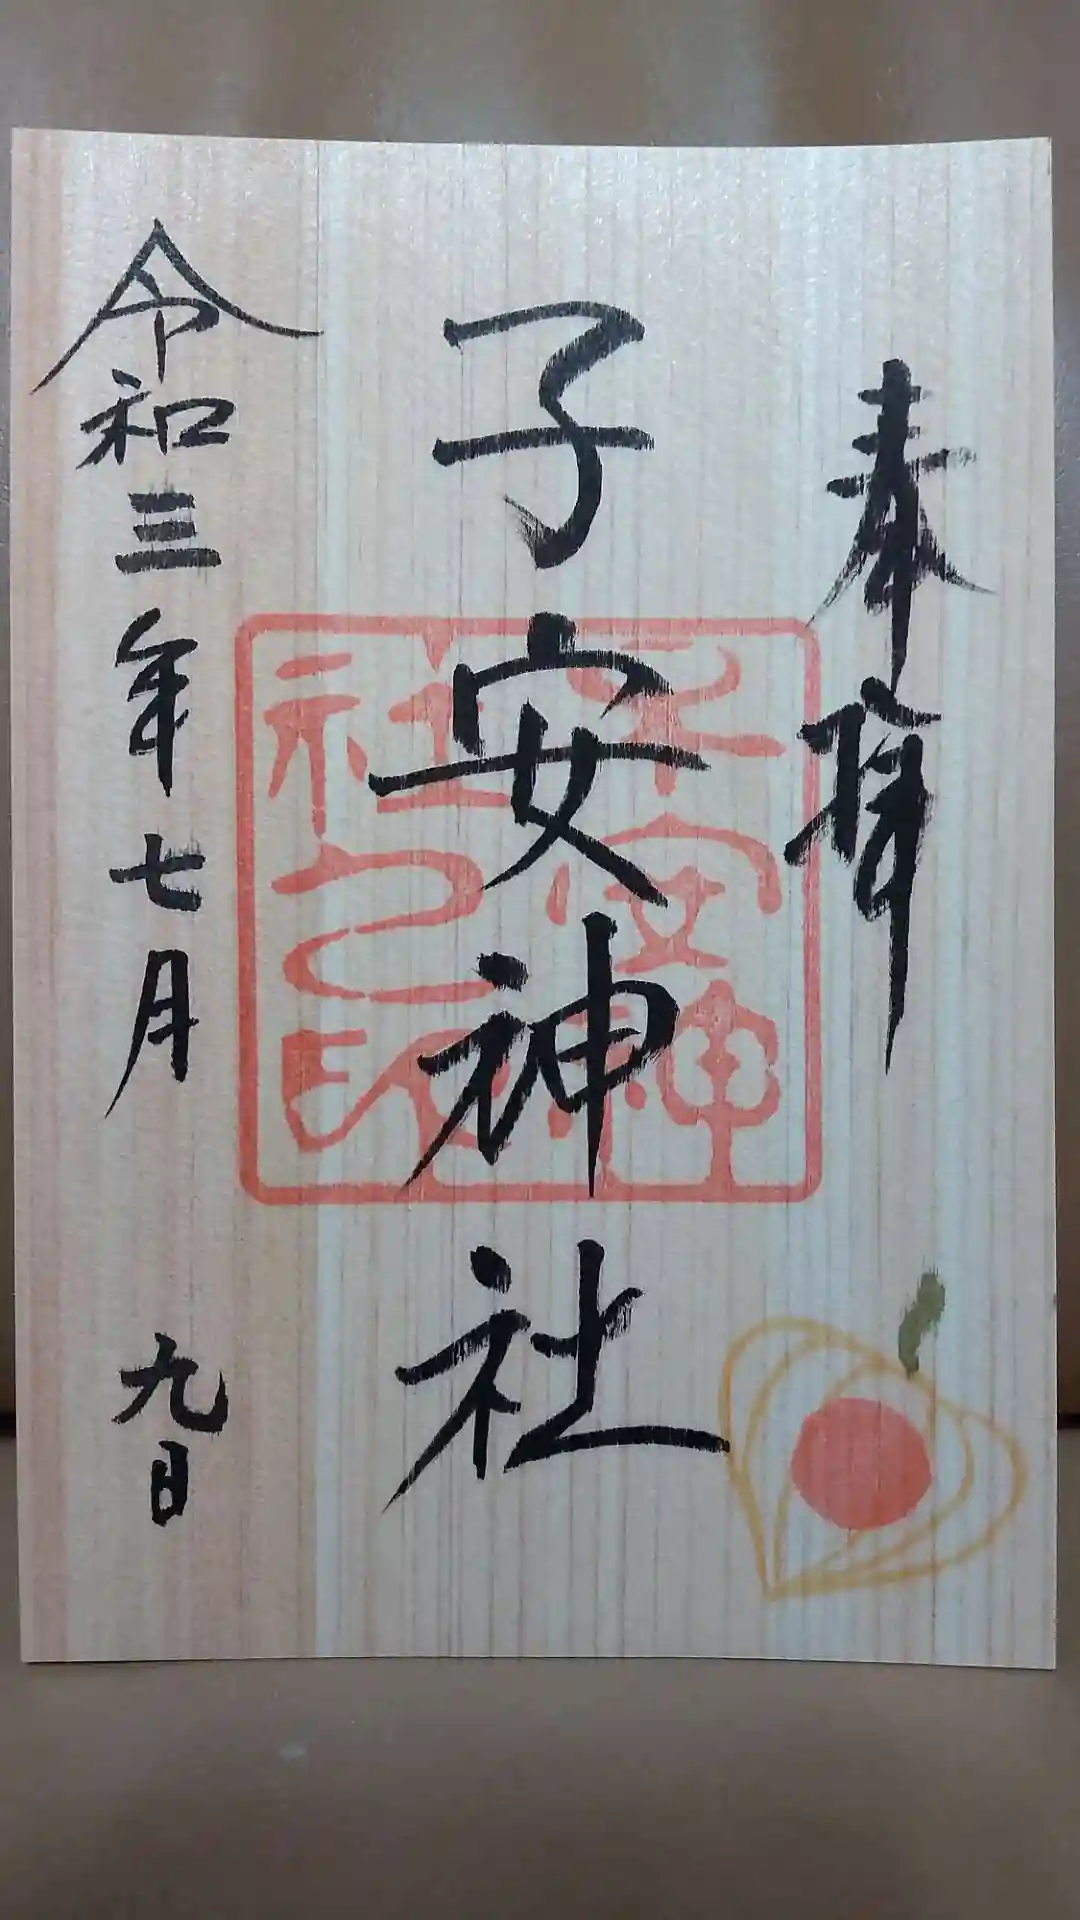 奉拝
子安神社
子安神
社之印
令和三年七月九日